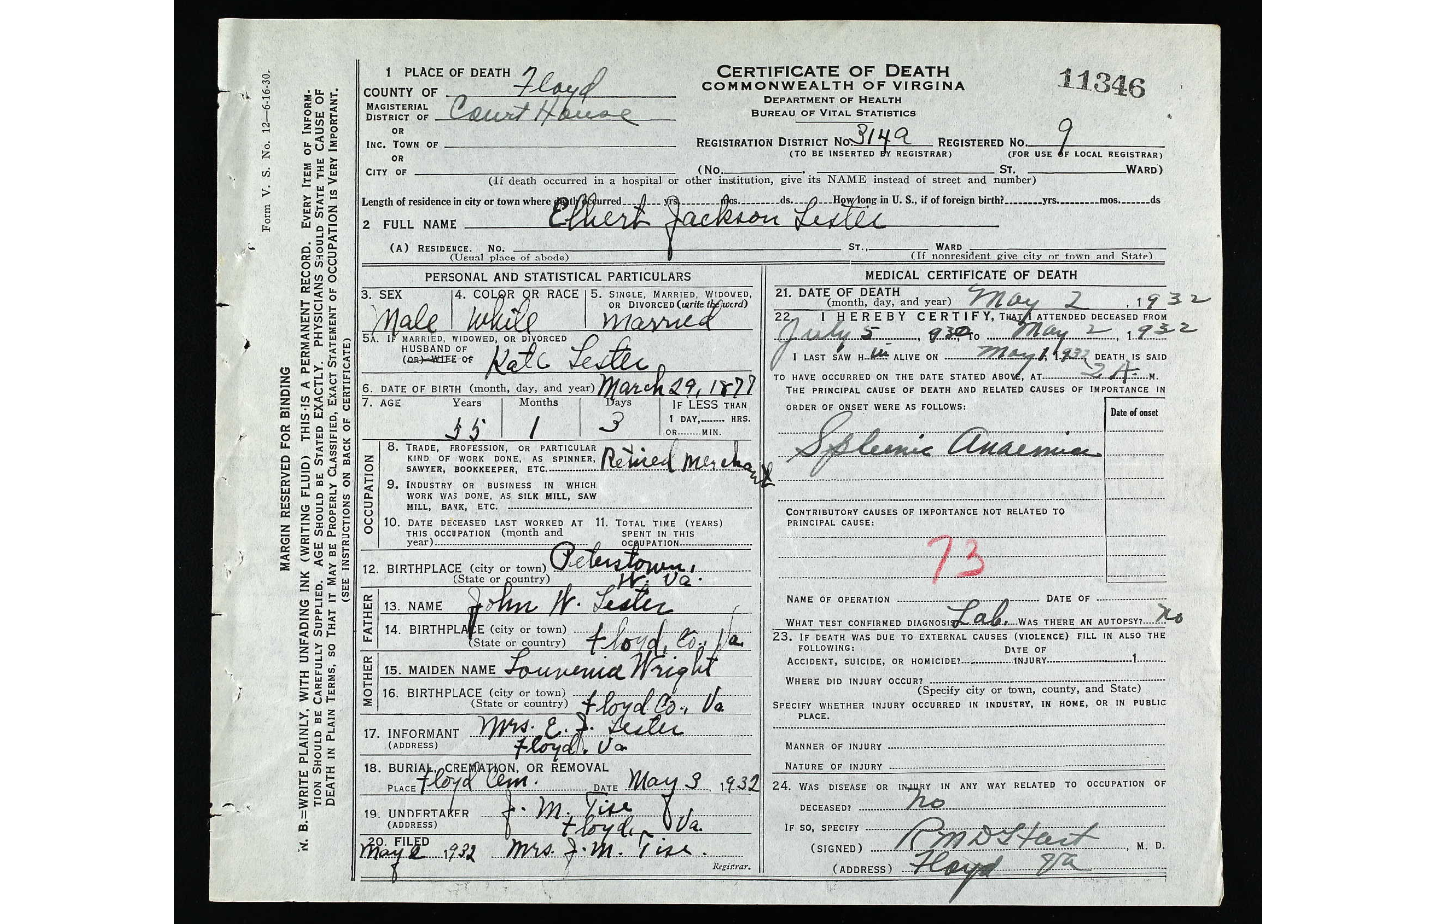 Form V. S. No. 12—6-16-30.
MARGIN RESERVED FOR BINDING
N. B.—WRITE PLAINLY, WITH UNFADING INK (WRITING FLUID) THIS IS A PERMANENT RECORD. EVERY ITEM OF INFORM-
TION SHOULD BE CAREFULLY SUPPLIED. AGE SHOULD BE STATED EXACTLY. PHYSICIANS SHOULD STATE THE CAUSE OF
DEATH IN PLAIN TERMS, SO THAT IT MAY BE PROPERLY CLASSIFIED, EXACT STATEMENT OF OCCUPATION IS VERY IMPORTANT.
(SEE INSTRUCTIONS ON BACK OF CERTIFICATE)
1 PLACE OF DEATH
COUNTY OF Floyd
MAGISTERIAL
DISTRICT OF Court House
OR
INC. TOWN OF
OR
CITY OF
CERTIFICATE OF DEATH
COMMONWEALTH OF VIRGINIA
DEPARTMENT OF HEALTH
BUREAU OF VITAL STATISTICS
11346
REGISTRATION DISTRICT No. 314a REGISTERED No. 9
(TO BE INSERTED BY REGISTRAR) (FOR USE OF LOCAL REGISTRAR)
(No. ST. WARD)
(If death occurred in a hospital or other institution, give its NAME instead of street and number)
Length of residence in city or town where death occurred yrs. mos. ds. How long in U. S., if of foreign birth? yrs. mos. ds
2 FULL NAME Elbert Jackson Lester
(A) RESIDENCE. No. ST., WARD
(Usual place of abode) (If nonresident give city or town and State)
PERSONAL AND STATISTICAL PARTICULARS
3. SEX Male
4. COLOR OR RACE White
5. SINGLE, MARRIED, WIDOWED,
OR DIVORCED (write the word)
Married
5A. IF MARRIED, WIDOWED, OR DIVORCED
HUSBAND OF
(OR) WIFE OF Kate Lester
6. DATE OF BIRTH (month, day, and year) March 29, 1877
7. AGE Years Months Days IF LESS THAN
1 DAY, HRS.
OR MIN.
55 1 3
OCCUPATION
8. TRADE, PROFESSION, OR PARTICULAR
KIND OF WORK DONE, AS SPINNER,
SAWYER, BOOKKEEPER, ETC. Retired Merchant
9. INDUSTRY OR BUSINESS IN WHICH
WORK WAS DONE, AS SILK MILL, SAW
MILL, BANK, ETC.
10. DATE DECEASED LAST WORKED AT
THIS OCCUPATION (month and
year)
11. TOTAL TIME (YEARS)
SPENT IN THIS
OCCUPATION
12. BIRTHPLACE (city or town) Peterstown,
(State or country) W. Va.
FATHER
13. NAME John W. Lester
14. BIRTHPLACE (city or town)
(State or country) Floyd, Co., Va
MOTHER
15. MAIDEN NAME Louvenia Wright
16. BIRTHPLACE (city or town)
(State or country) Floyd Co., Va
17. INFORMANT Mrs. E. J. Lester
(ADDRESS) Floyd, Va
18. BURIAL, CREMATION, OR REMOVAL
PLACE Floyd Cem. DATE May 3, 1932
19. UNDERTAKER J. M. Tise
(ADDRESS) Floyd, Va.
20. FILED
May 2 1932 Mrs. J. M. Tise.
Registrar.
MEDICAL CERTIFICATE OF DEATH
21. DATE OF DEATH
(month, day, and year) May 2, 1932
22. I HEREBY CERTIFY, THAT I ATTENDED DECEASED FROM
July 5, TO May 2, 1932
I LAST SAW H im ALIVE ON May 1, 1932 DEATH IS SAID
TO HAVE OCCURRED ON THE DATE STATED ABOVE, AT 2 A. M.
THE PRINCIPAL CAUSE OF DEATH AND RELATED CAUSES OF IMPORTANCE IN
ORDER OF ONSET WERE AS FOLLOWS:
Date of onset
Splenic Anaemia
CONTRIBUTORY CAUSES OF IMPORTANCE NOT RELATED TO
PRINCIPAL CAUSE:
73
NAME OF OPERATION DATE OF
WHAT TEST CONFIRMED DIAGNOSIS Lab. WAS THERE AN AUTOPSY? no
23. IF DEATH WAS DUE TO EXTERNAL CAUSES (VIOLENCE) FILL IN ALSO THE
FOLLOWING: DATE OF
ACCIDENT, SUICIDE, OR HOMICIDE? INJURY 1
WHERE DID INJURY OCCUR?
(Specify city or town, county, and State)
SPECIFY WHETHER INJURY OCCURRED IN INDUSTRY, IN HOME, OR IN PUBLIC
PLACE.
MANNER OF INJURY
NATURE OF INJURY
24. WAS DISEASE OR INJURY IN ANY WAY RELATED TO OCCUPATION OF
DECEASED? no
IF SO, SPECIFY
(SIGNED) , M. D.
(ADDRESS) Floyd Va